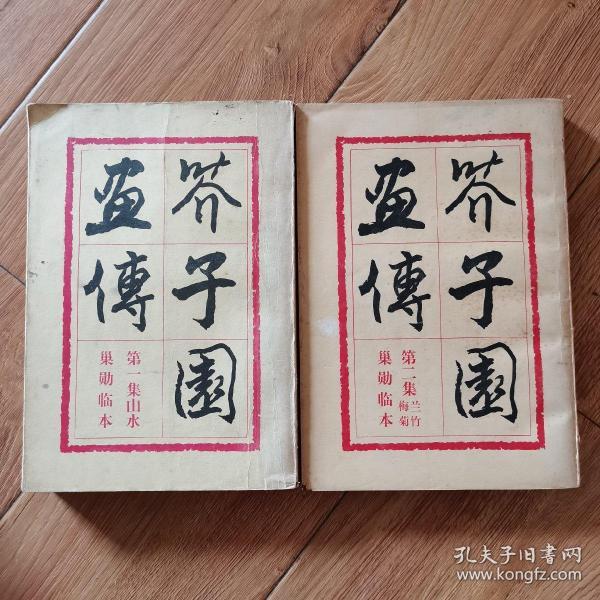 芥子園
畫傳
第一集山水
巢勋临本
芥子園
畫傳
第二集
兰竹
梅菊
巢勋临本
孔夫子旧书网
www.kongfz.com